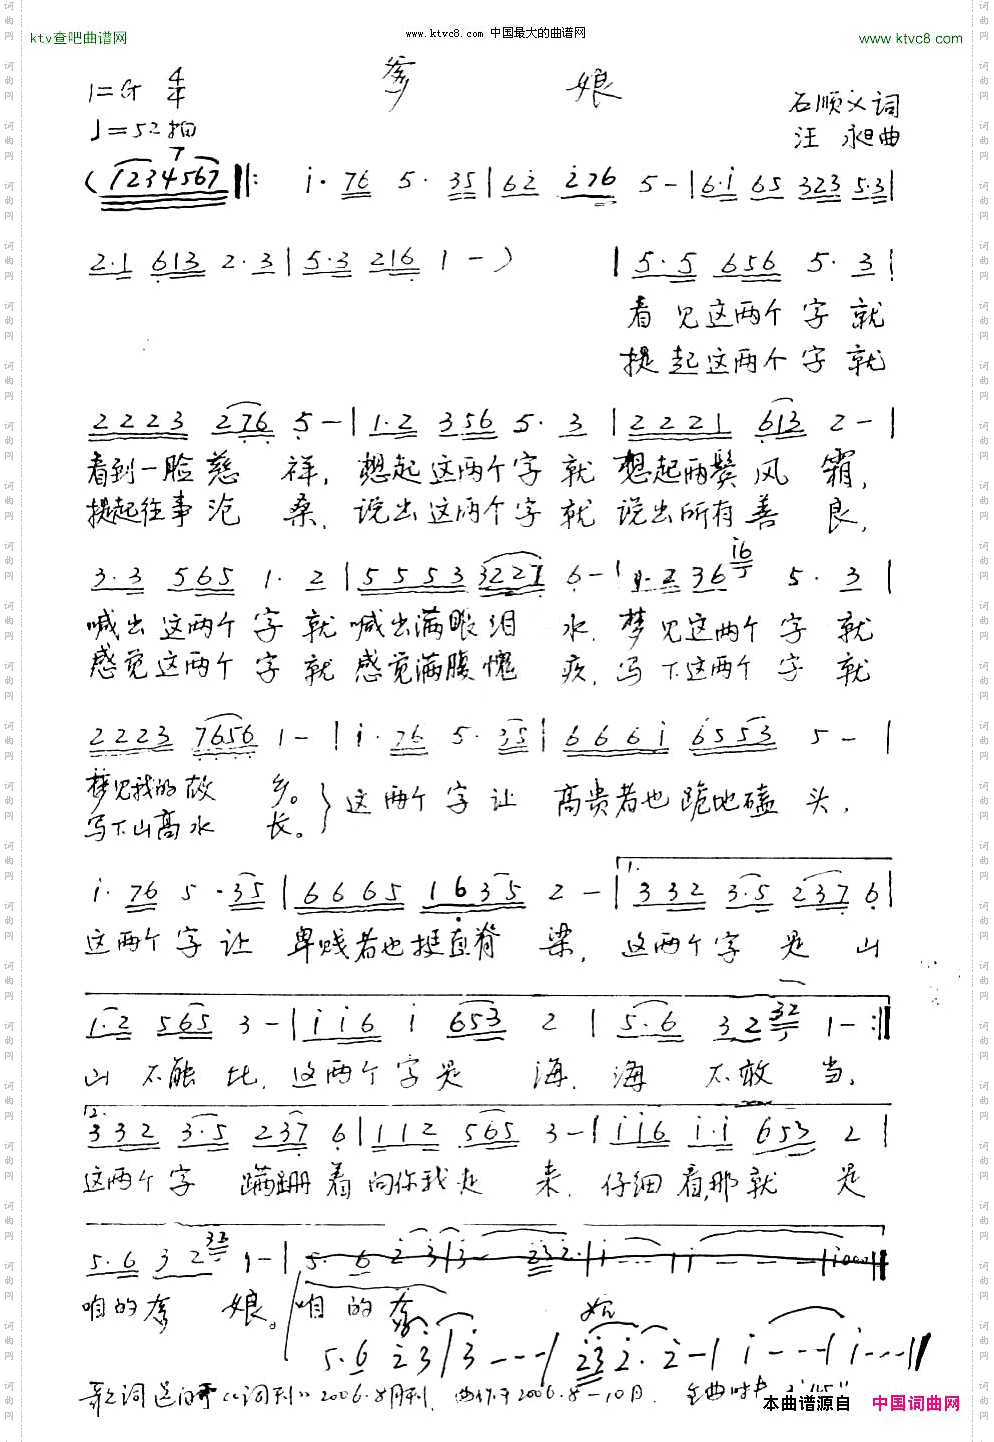 ktv查吧曲谱网
www.ktvc8.com 中国最大的曲谱网
www.ktvc8.com
爹 娘
1=G 4/4
♩=52拍
石顺义词
汪 曲
(1234567 ‖: i· 76 5· 35 | 62 i76 5 - | 6·i 65 323 5·3 |
2·1 613 2·3 | 5·3 216 1 - ) | 5·5 656 5· 3 |
看见这两个字就
提起这两个字就
2223 276 5 - | 1·2 356 5· 3 | 2221 613 2 - |
看到一脸慈祥，想起这两个字就想起两鬓风霜，
提起往事沧桑，说出这两个字就说出所有善良，
3·3 565 1· 2 | 5553 3221 6 - | 1·2 36 i6 5· 3 |
喊出这两个字就喊出满眼泪水，梦见这两个字就
感觉这两个字就感觉满腹愧疚，写下这两个字就
2223 7656 1 - | i· 76 5· 35 | 666i 6553 5 - |
梦见我的故乡。
写下山高水长。
这两个字让高贵者也跪地磕头，
i· 76 5·35 | 6665 1635 2 - | 1. 332 3·5 237 6 |
这两个字让卑贱者也挺直脊梁，这两个字是山
1·2 565 3 - | ii6 i 653 2 | 5·6 32 32 1 - :‖
山不能比，这两个字是海，海不敢当，
2. 332 3·5 237 6 | 112 565 3 - | ii6 i·i 653 2 |
这两个字蹒跚着向你我走来，仔细看，那就是
5·6 32 32 1 - | 5· 6 2 3 | 3 - 232· | i - - | i - - - | i000 ‖
咱的爹娘。咱的爹娘
5·6 23 | 3 - - - | 232· 2 - | i - - - | i · - - - ‖
歌词选自《词刊》2006.8月刊， 曲作于2006.8－10月.
本曲谱源自 中国词曲网
词曲网